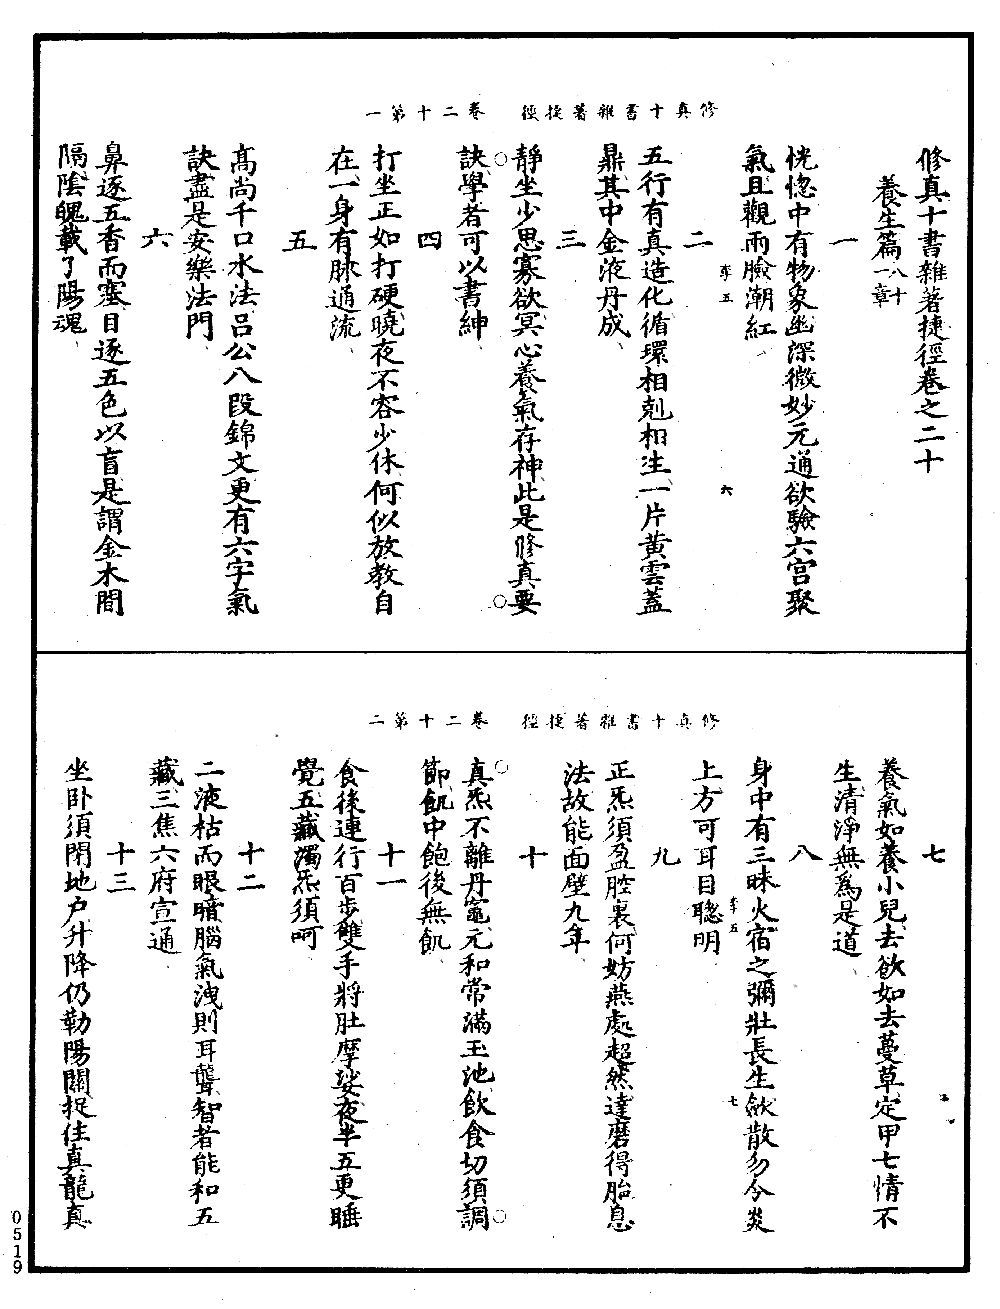 修真十書雜著捷徑　卷二十第一
修真十書雜著捷徑卷之二十
養生篇八十一章
一
恍惚中有物象幽深微妙元通欲驗六宮聚
氣且觀兩臉潮紅
李五
六
二
五行有真造化循環相剋相生一片黃雲蓋
鼎其中金液丹成
三
靜坐少思寡欲冥心養氣存神此是修真要
訣學者可以書紳
四
打坐正如打硬曉夜不容少休何似放教自
在一身有脉通流
五
高尚千口水法呂公八段錦文更有六字氣
訣盡是安樂法門
六
鼻逐五香而塞目逐五色以盲是謂金木間
隔陰魄載了陽魂
修真十書雜著捷徑　卷二十第二
七
養氣如養小兒去欲如去蔓草定甲七情不
生清淨無為是道
八
身中有三昧火宿之彌壯長生歛散勿令炎
上方可耳目聰明
李五
七
九
正炁須盈腔裏何妨燕處超然達磨得胎息
法故能面壁九年
十
真炁不離丹竈元和常滿玉池飲食切須調
節飢中飽後無飢
十一
食後連行百步雙手將肚摩娑夜半五更睡
覺五藏濁炁須呵
十二
二液枯而眼暗腦氣洩則耳聾智者能和五
藏三焦六府宣通
十三
坐卧須閉地户升降仍勒陽關捉住真龍真
0519